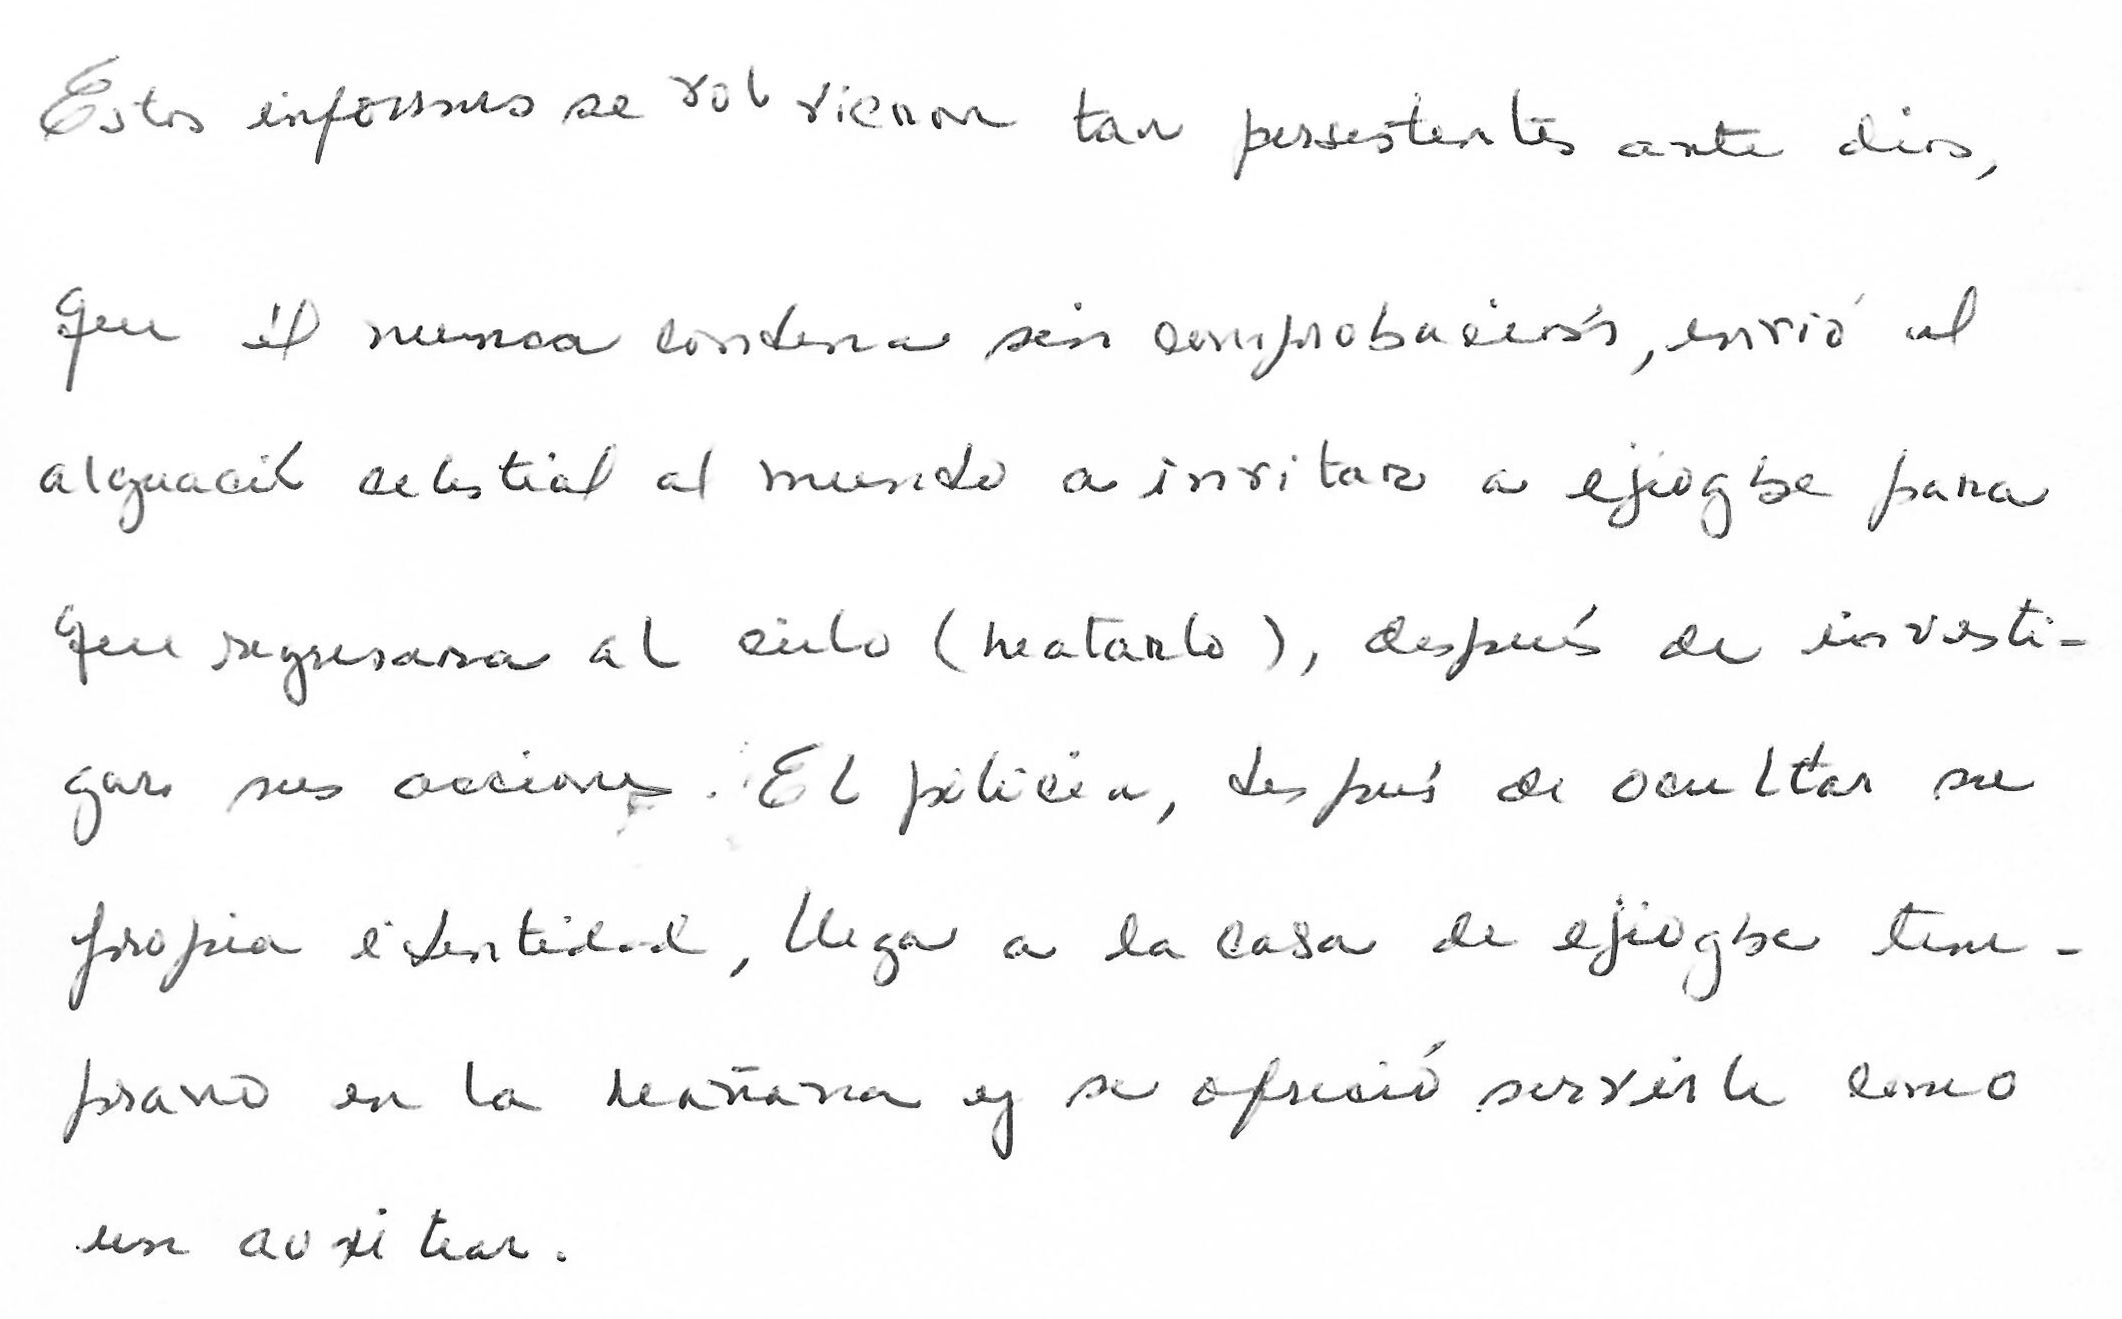 Estos informes se volvieron tan persistentes ante dios,
que él nunca condena sin comprobación, envió al
alguacil celestial al mundo a invitar a ejiogbe para
que regresara al cielo (matarlo), después de investi-
gar sus acciones. El policia, después de ocultar su
propia identidad, llega a la casa de ejiogbe tem-
prano en la mañana y se ofreció servirle como
un auxitiar.